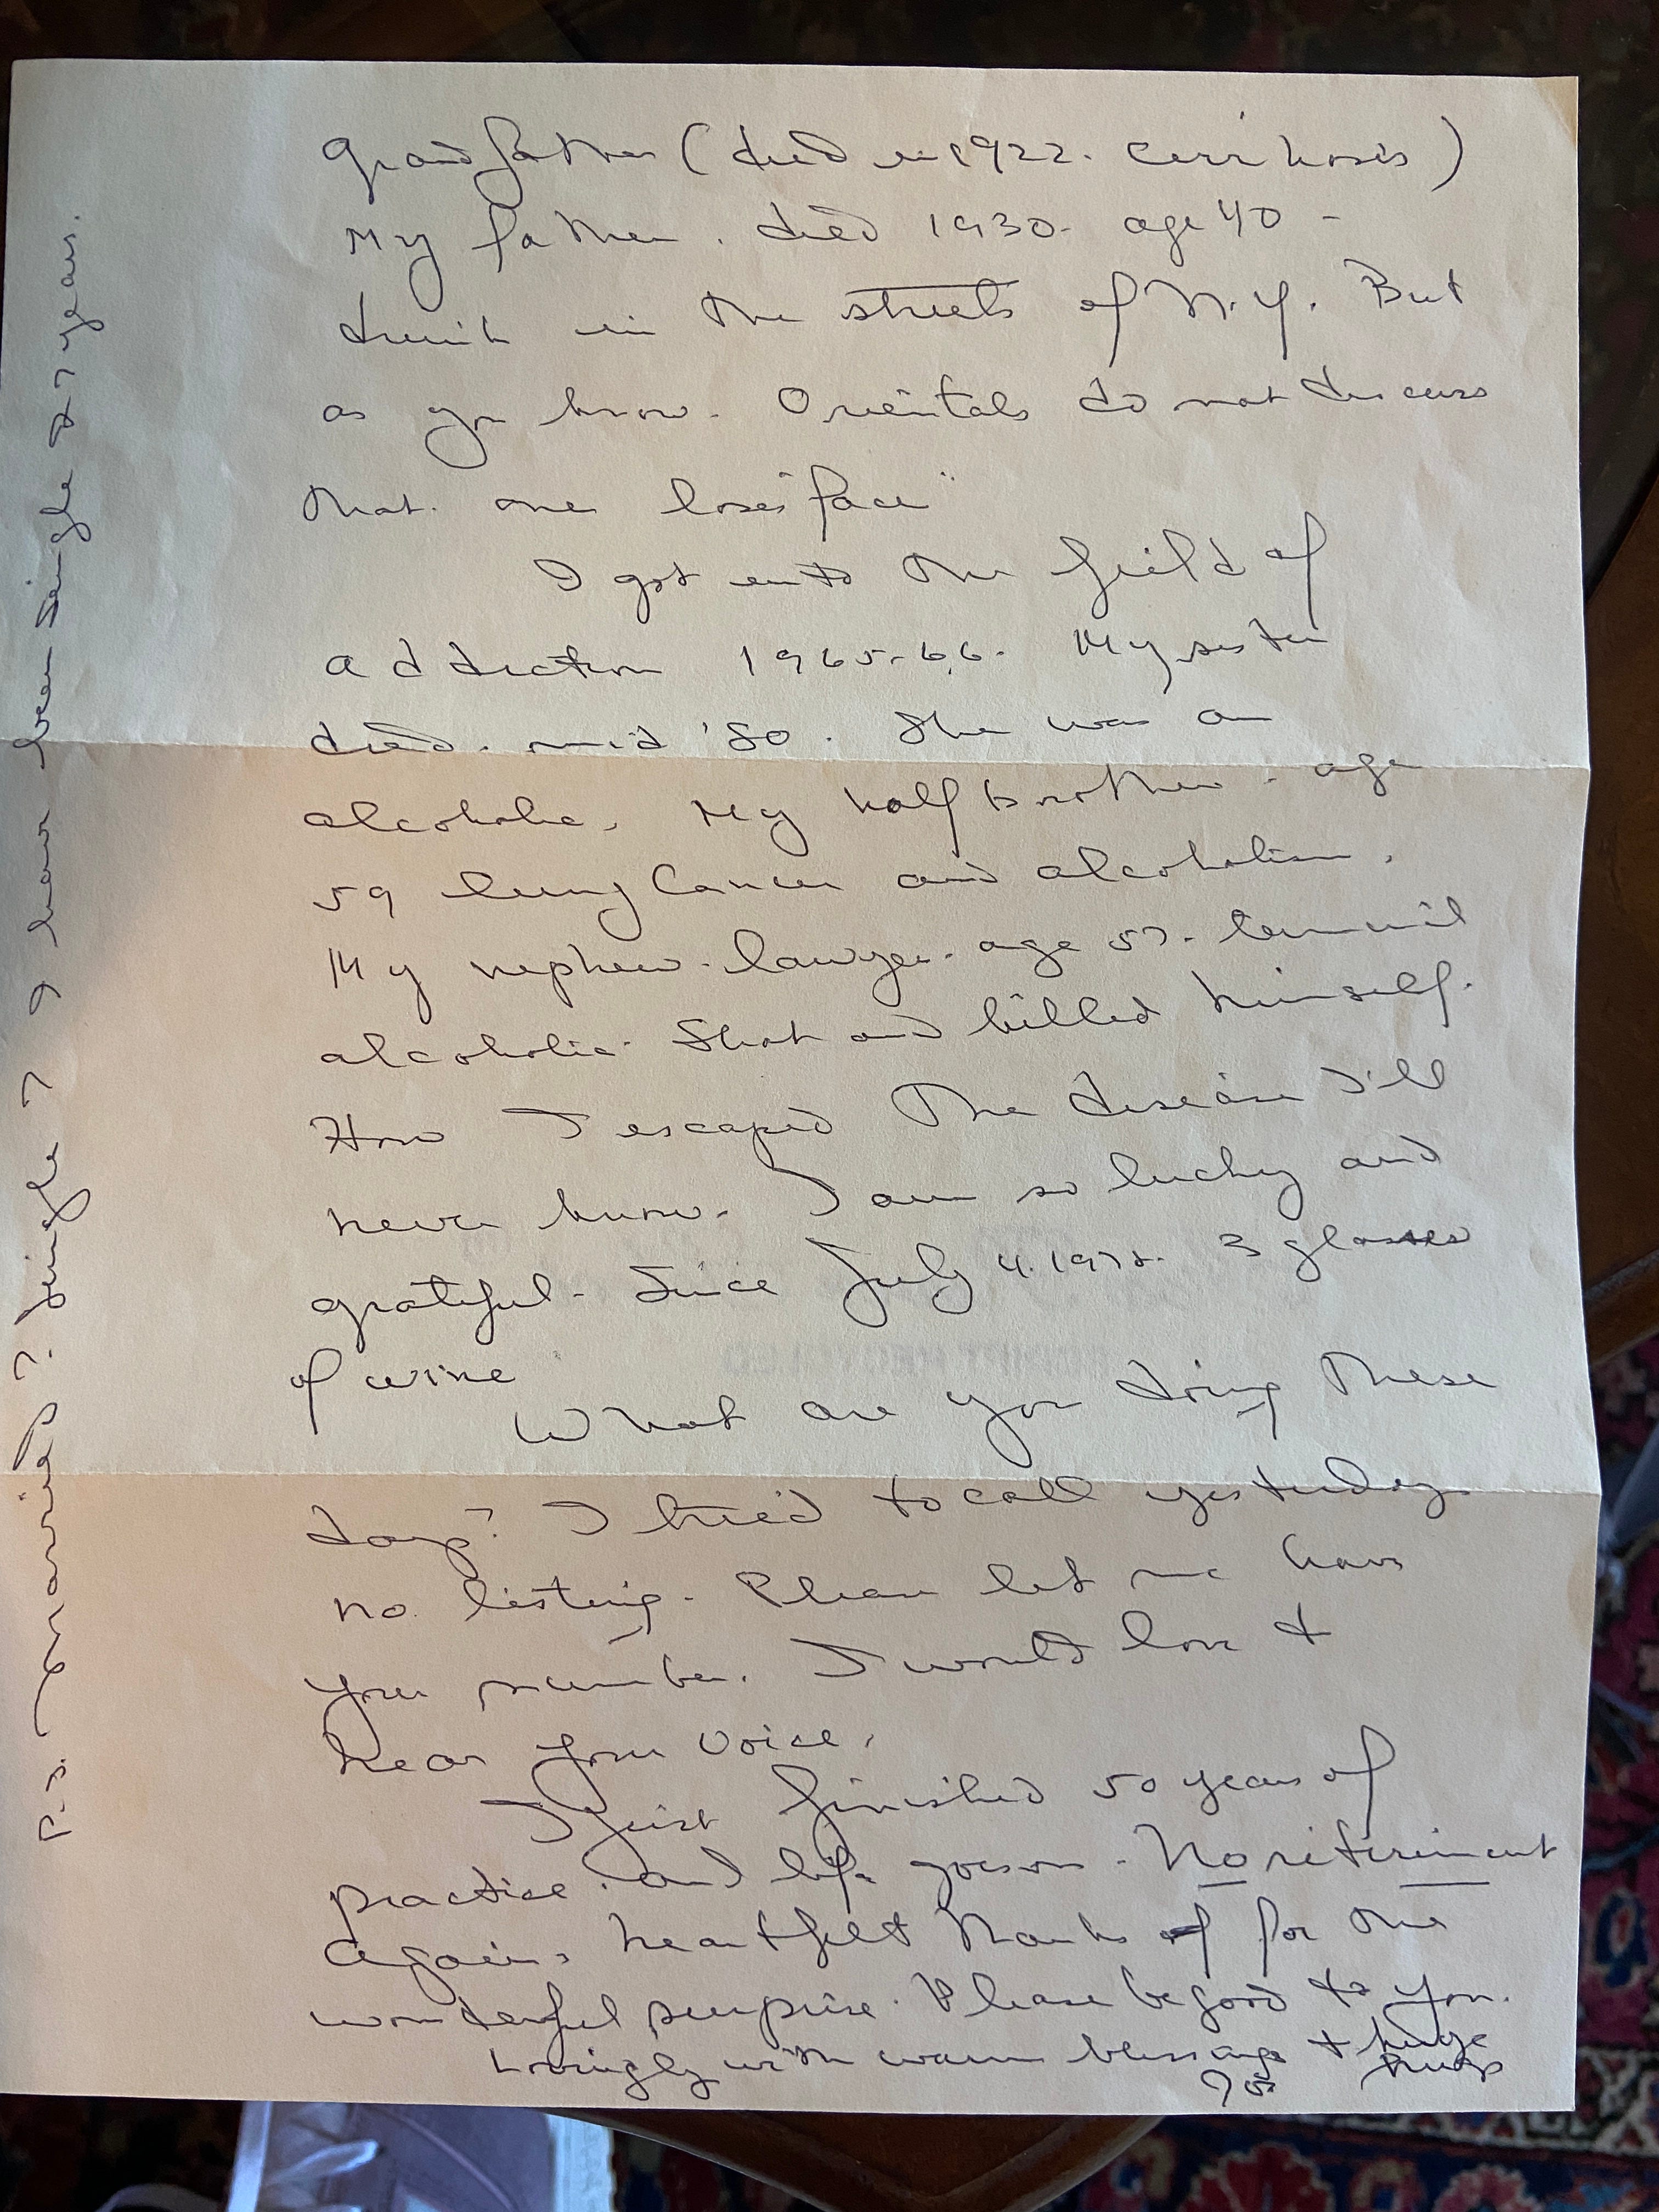 Grandfather (died in 1922. cerrihosis)
My father. died 1930- age 40 -
drunk in the streets of N.Y. But
as you know. Orientals do not discuss
that. one loses "face"
I got into the field of
addiction 1965-66. My sister
died. mid '80. She was an
alcoholic. My half brother - age
59 lung Cancer and alcoholism.
My nephew - lawyer - age 57.
alcoholic. Shot and killed himself.
How I escaped the disease I'll
never know. I am so lucky and
grateful. Since July 4. 3 glasses
of wine
What are you doing these
days? I tried to call yesterday
no listing. Please let me have
your number. I would love to
hear your voice.
I just finished 50 years of
practice. and life goes on - No retirement
Again, heartfelt thanks for the
wonderful surprise. Please be good to you.
Lovingly with warm blessings + huge
hugs
P.S. married?. Single? I have been single 27 years.